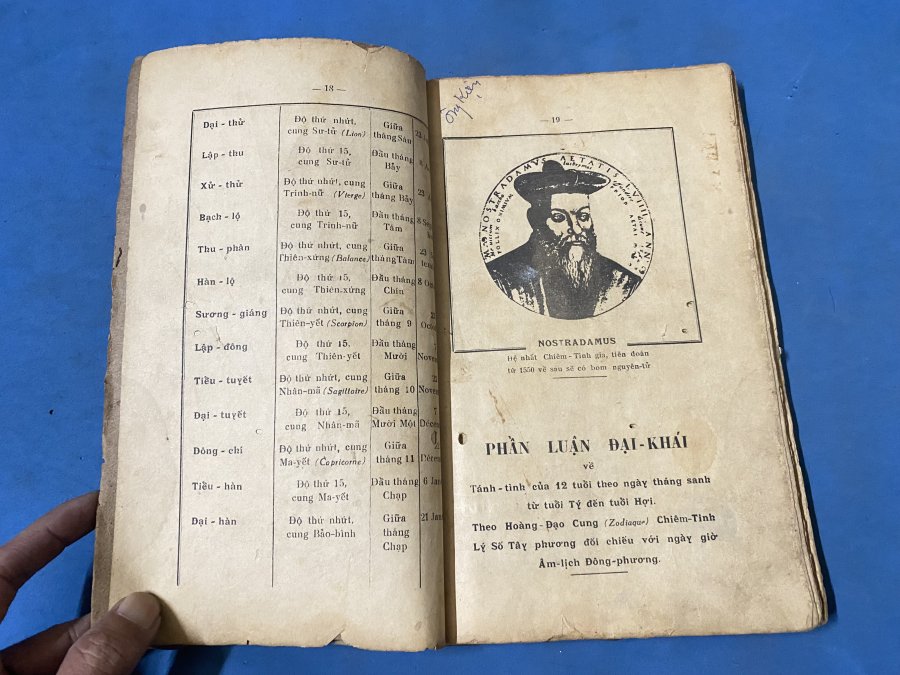 — 18 —
Đại - thử
Độ thứ nhứt,
cung Sư-tử (Lion)
Giữa
tháng Sáu
Lập - thu
Độ thứ 15,
cung Sư-tử
Đầu tháng
Bẩy
Xử - thử
Độ thứ nhứt, cung
Trinh-nữ (Vierge)
Giữa
tháng Bẩy
23
Bạch - lộ
Độ thứ 15,
cung Trinh-nữ
Đầu tháng
Tám
8 Se
Thu - phân
Độ thứ nhứt, cung
Thiên-xứng (Balance)
Giữa
tháng Tám
23
Hàn - lộ
Độ thứ 15,
cung Thiên-xứng
Đầu tháng
Chín
8 Oc
Sương - giáng
Độ thứ nhứt, cung
Thiên-yết (Scorpion)
Giữa
tháng 9
Octo
Lập - đông
Độ thứ 15.
cung Thiên-yết
Đầu tháng
Mười
7
Novem
Tiều - tuyết
Độ thứ nhứt, cung
Nhân-mã (Sagittaire)
Giữa
tháng 10
Novem
Đại - tuyết
Độ thứ 15,
cung Nhân-mã
Đầu tháng
Mười Một
7
Décem
Đông - chí
Độ thứ nhứt, cung
Ma-yết (Capricorne)
Giữa
tháng 11
Décem
Tiều - hàn
Độ thứ 15,
cung Ma-yết
Đầu tháng
Chạp
6 Jan
Đại - hàn
Độ thứ nhứt,
cung Bảo-bình
Giữa
tháng
Chạp
21 Jan
— 19 —
NOSTRADAMUS AETATIS LVIIII
NOSTRADAMUS
Đệ nhất Chiêm - Tinh gia, tiên đoán
từ 1550 về sau sẽ có bom nguyên-tử
PHẦN LUẬN ĐẠI - KHÁI
về
Tánh - tình của 12 tuổi theo ngày tháng sanh
từ tuổi Tý đến tuổi Hợi.
Theo Hoàng - Đạo Cung (Zodiaque) Chiêm-Tinh
Lý Số Tây phương đối chiếu với ngày giờ
Âm-lịch Đông-phương.